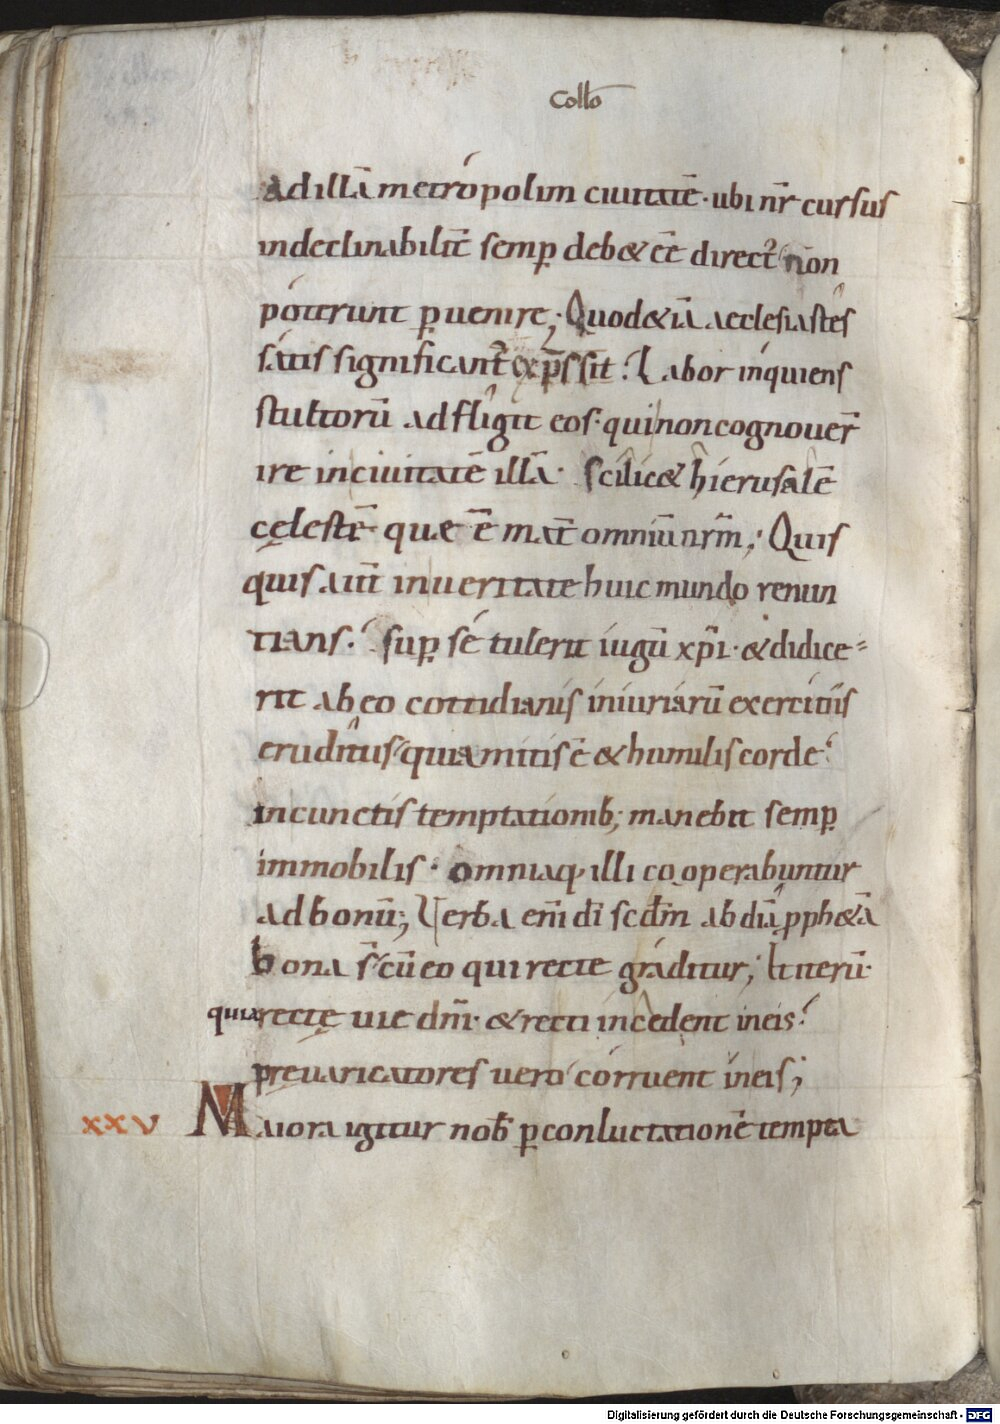 Collo
ad illā metropolim ciuitatē · ubi nr̄ cursus
indeclinabilit̄ semp̱ deb& eē direct᷒ non
poterunt p̱uenire; Quod &iā aeclesiastes
satis significant̄ exp̄ssit? Labor inquiens
stultorū adfligit eos · qui non cognouer̄
ire in ciuitatē illā · scilic& hierusalē
cęlestē · quae ē mat̄ omniū nr̄m; Quis
quis aut̄ in ueritate huic mundo renun
tians? sup̱ se tulerit iugū xp̄i · & didice-
rit ab eo cottidianis iniuriarū exercitiis
eruditus quia mitis ē & humilis corde?
in cunctis temptationib; manebit semp̱
immobilis · omniaq· illi cooperabuntur
ad bonū; Verba eni̅ dī sc̄dm̄ abdiā p̱ph&ā
bona s̄ cū eo qui recte graditur; Et iterū·
quia rectę uię dnī · & recti incedent in eis?
pręuaricatores uero corruent in eis;
XXV Maiora igitur nob̄ p̱ conluctationē tempta
Digitalisierung gefördert durch die Deutsche Forschungsgemeinschaft - DFG